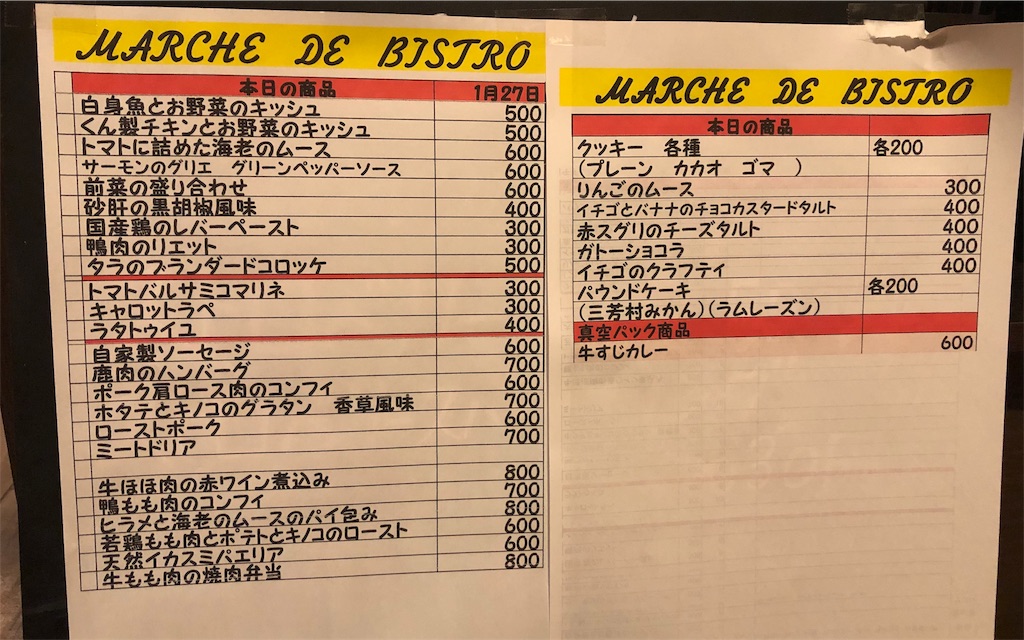 MARCHE DE BISTRO
本日の商品 1月27日
白身魚とお野菜のキッシュ 500
くん製チキンとお野菜のキッシュ 500
トマトに詰めた海老のムース 600
サーモンのグリエ　グリーンペッパーソース 600
前菜の盛り合わせ 600
砂肝の黒胡椒風味 400
国産鶏のレバーペースト 300
鴨肉のリエット 300
タラのブランダードコロッケ 500
トマトバルサミコマリネ 300
キャロットラペ 300
ラタトゥイユ 400
自家製ソーセージ 600
鹿肉のハンバーグ 700
ポーク肩ロース肉のコンフィ 600
ホタテとキノコのグラタン　香草風味 700
ローストポーク 600
ミートドリア 700
牛ほほ肉の赤ワイン煮込み 800
鴨もも肉のコンフィ 700
ヒラメと海老のムースのパイ包み 800
若鶏もも肉とポテトとキノコのロースト 600
天然イカスミパエリア 600
牛もも肉の焼肉弁当 800
MARCHE DE BISTRO
本日の商品
クッキー　各種 各200
(プレーン　カカオ　ゴマ　)
りんごのムース 300
イチゴとバナナのチョコカスタードタルト 400
赤スグリのチーズタルト 400
ガトーショコラ 400
イチゴのクラフティ 400
パウンドケーキ 各200
(三芳村みかん)(ラムレーズン)
真空パック商品
牛すじカレー 600